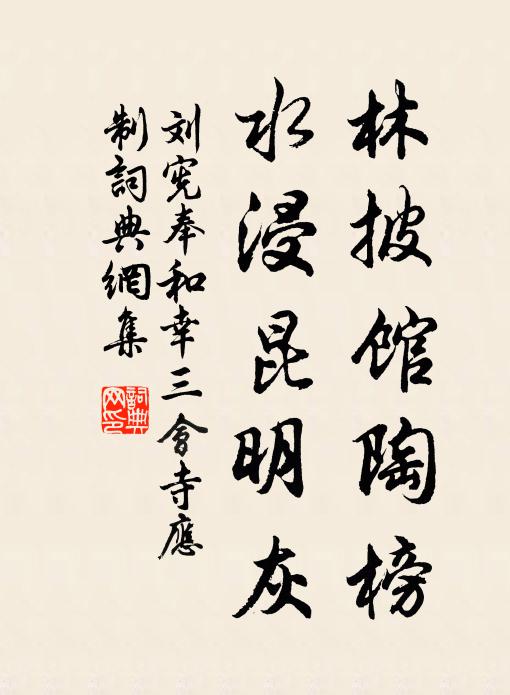 林披馆陶榜
水浸昆明灰
刘宪奉和幸三會寺應
制詞典網集
詞典
网印